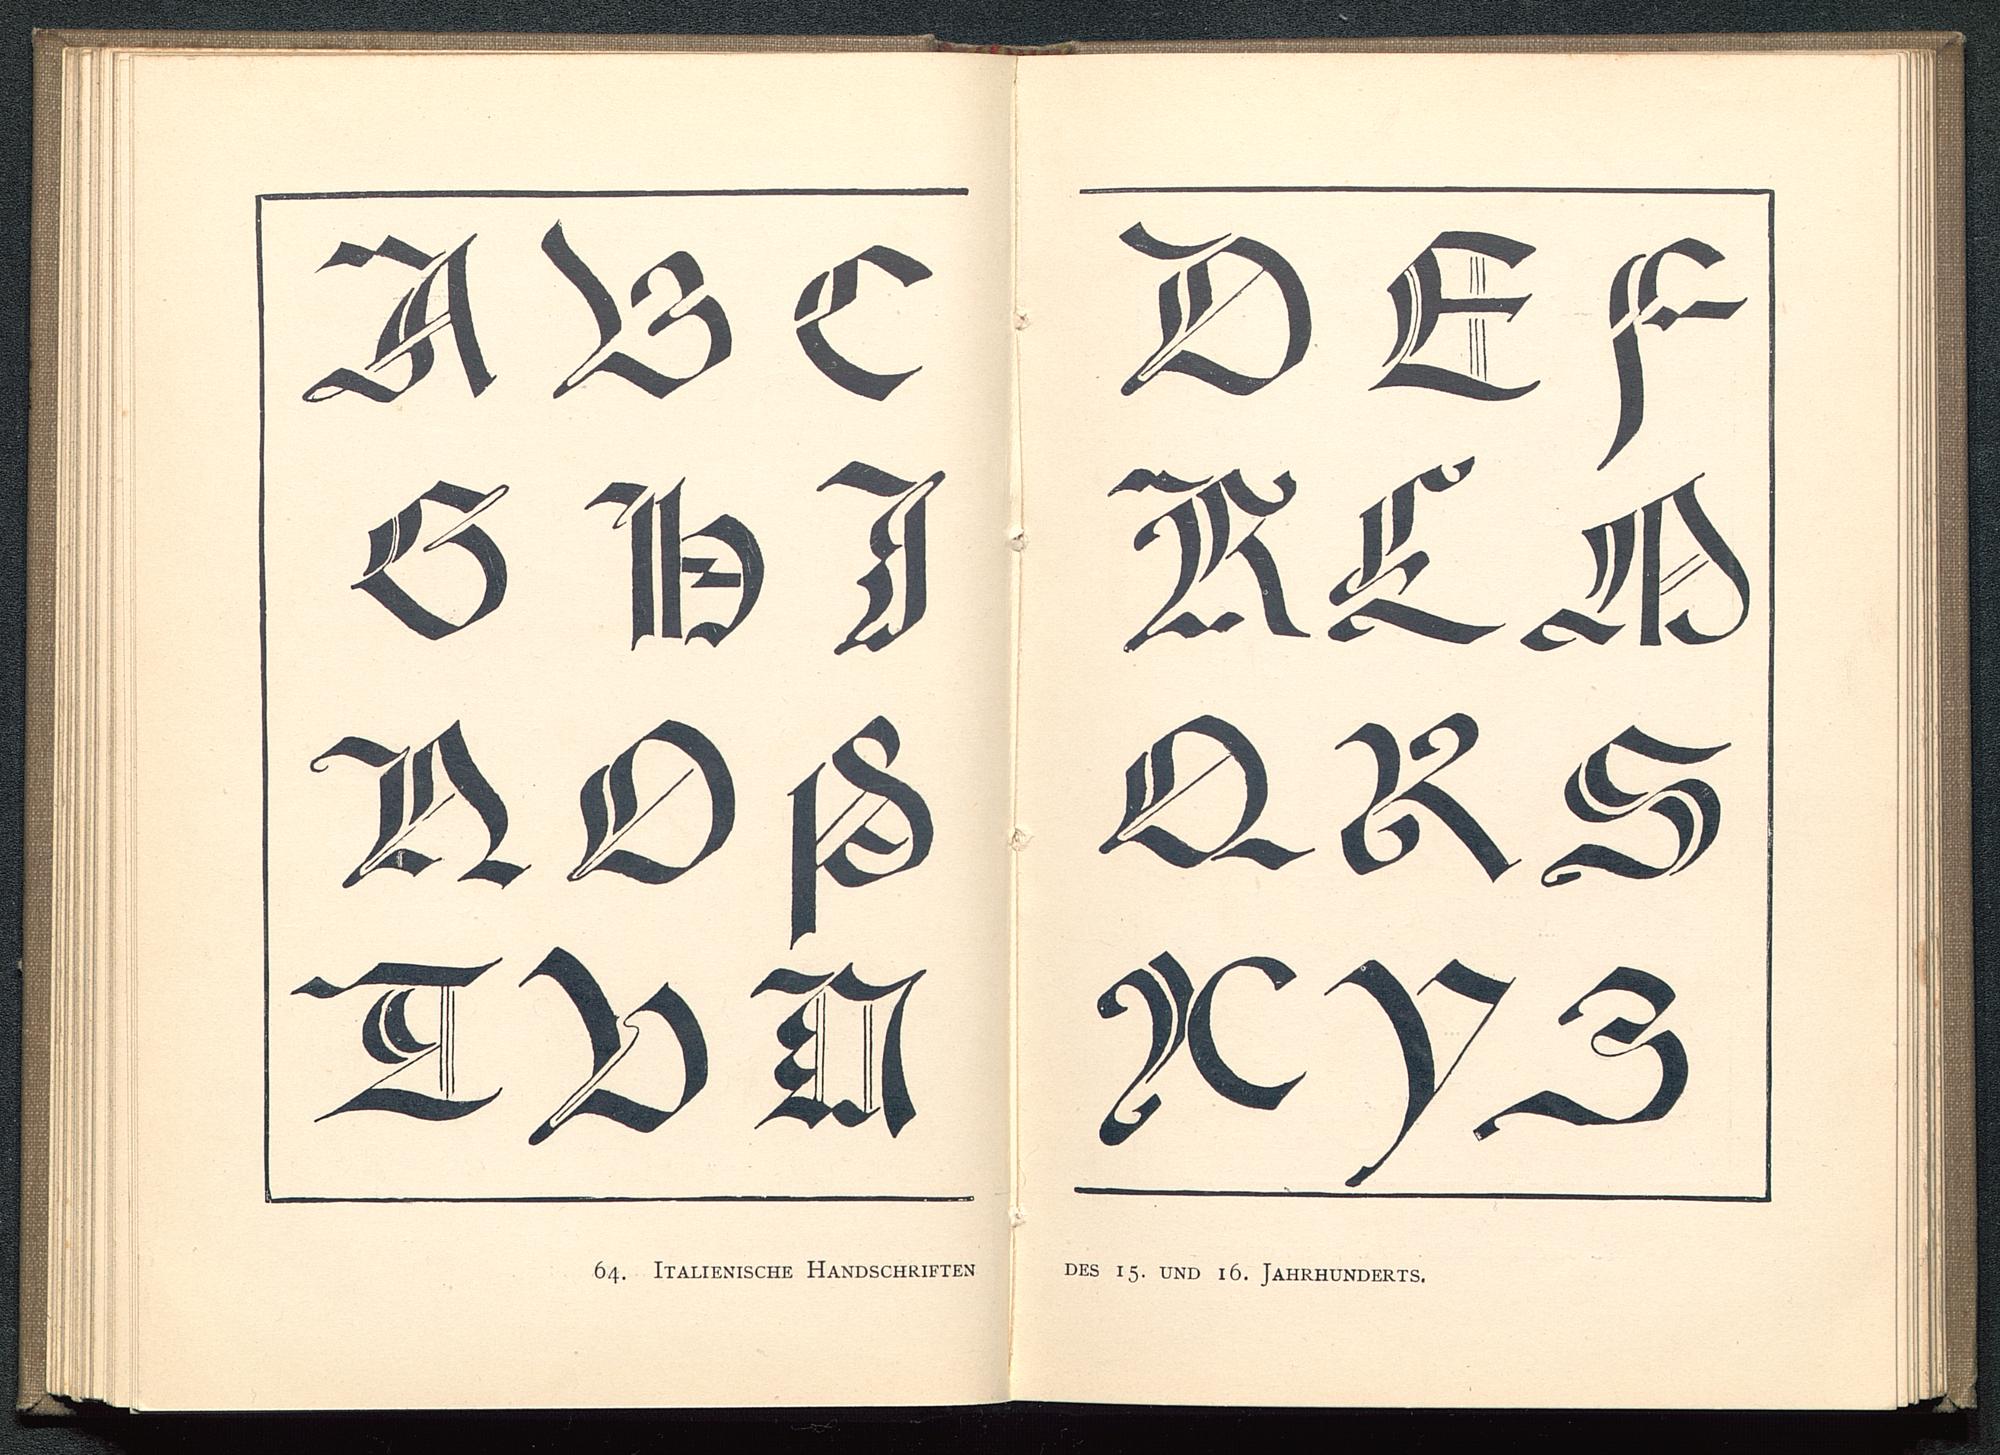 A B C D E F
G H I K L M
N O P Q R S
T V W X Y Z
64. Italienische Handschriften des 15. und 16. Jahrhunderts.